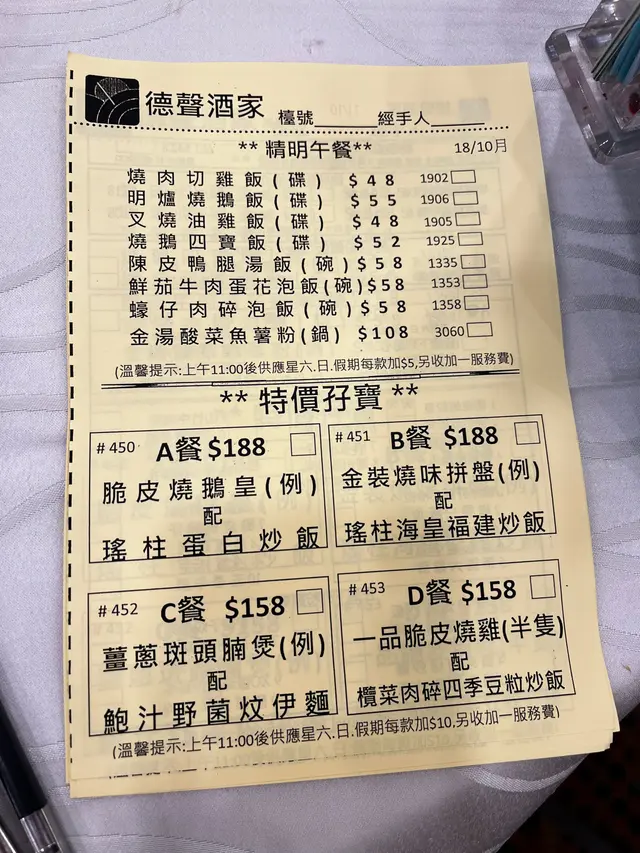 德聲酒家 檯號______經手人______
** 精明午餐** 18/10月
燒肉切雞飯(碟) $48 1902
明爐燒鵝飯(碟) $55 1906
叉燒油雞飯(碟) $48 1905
燒鵝四寶飯(碟) $52 1925
陳皮鴨腿湯飯(碗) $58 1335
鮮茄牛肉蛋花泡飯(碗) $58 1353
蠔仔肉碎泡飯(碗) $58 1358
金湯酸菜魚薯粉(鍋) $108 3060
(溫馨提示:上午11:00後供應星六.日.假期每款加$5,另收加一服務費)
** 特價孖寶 **
#450 A餐 $188
脆皮燒鵝皇(例)
配
瑤柱蛋白炒飯
#451 B餐 $188
金裝燒味拼盤(例)
配
瑤柱海皇福建炒飯
#452 C餐 $158
薑蔥斑頭腩煲(例)
配
鮑汁野菌炆伊麵
#453 D餐 $158
一品脆皮燒雞(半隻)
配
欖菜肉碎四季豆粒炒飯
(溫馨提示:上午11:00後供應星六.日.假期每款加$10,另收加一服務費)